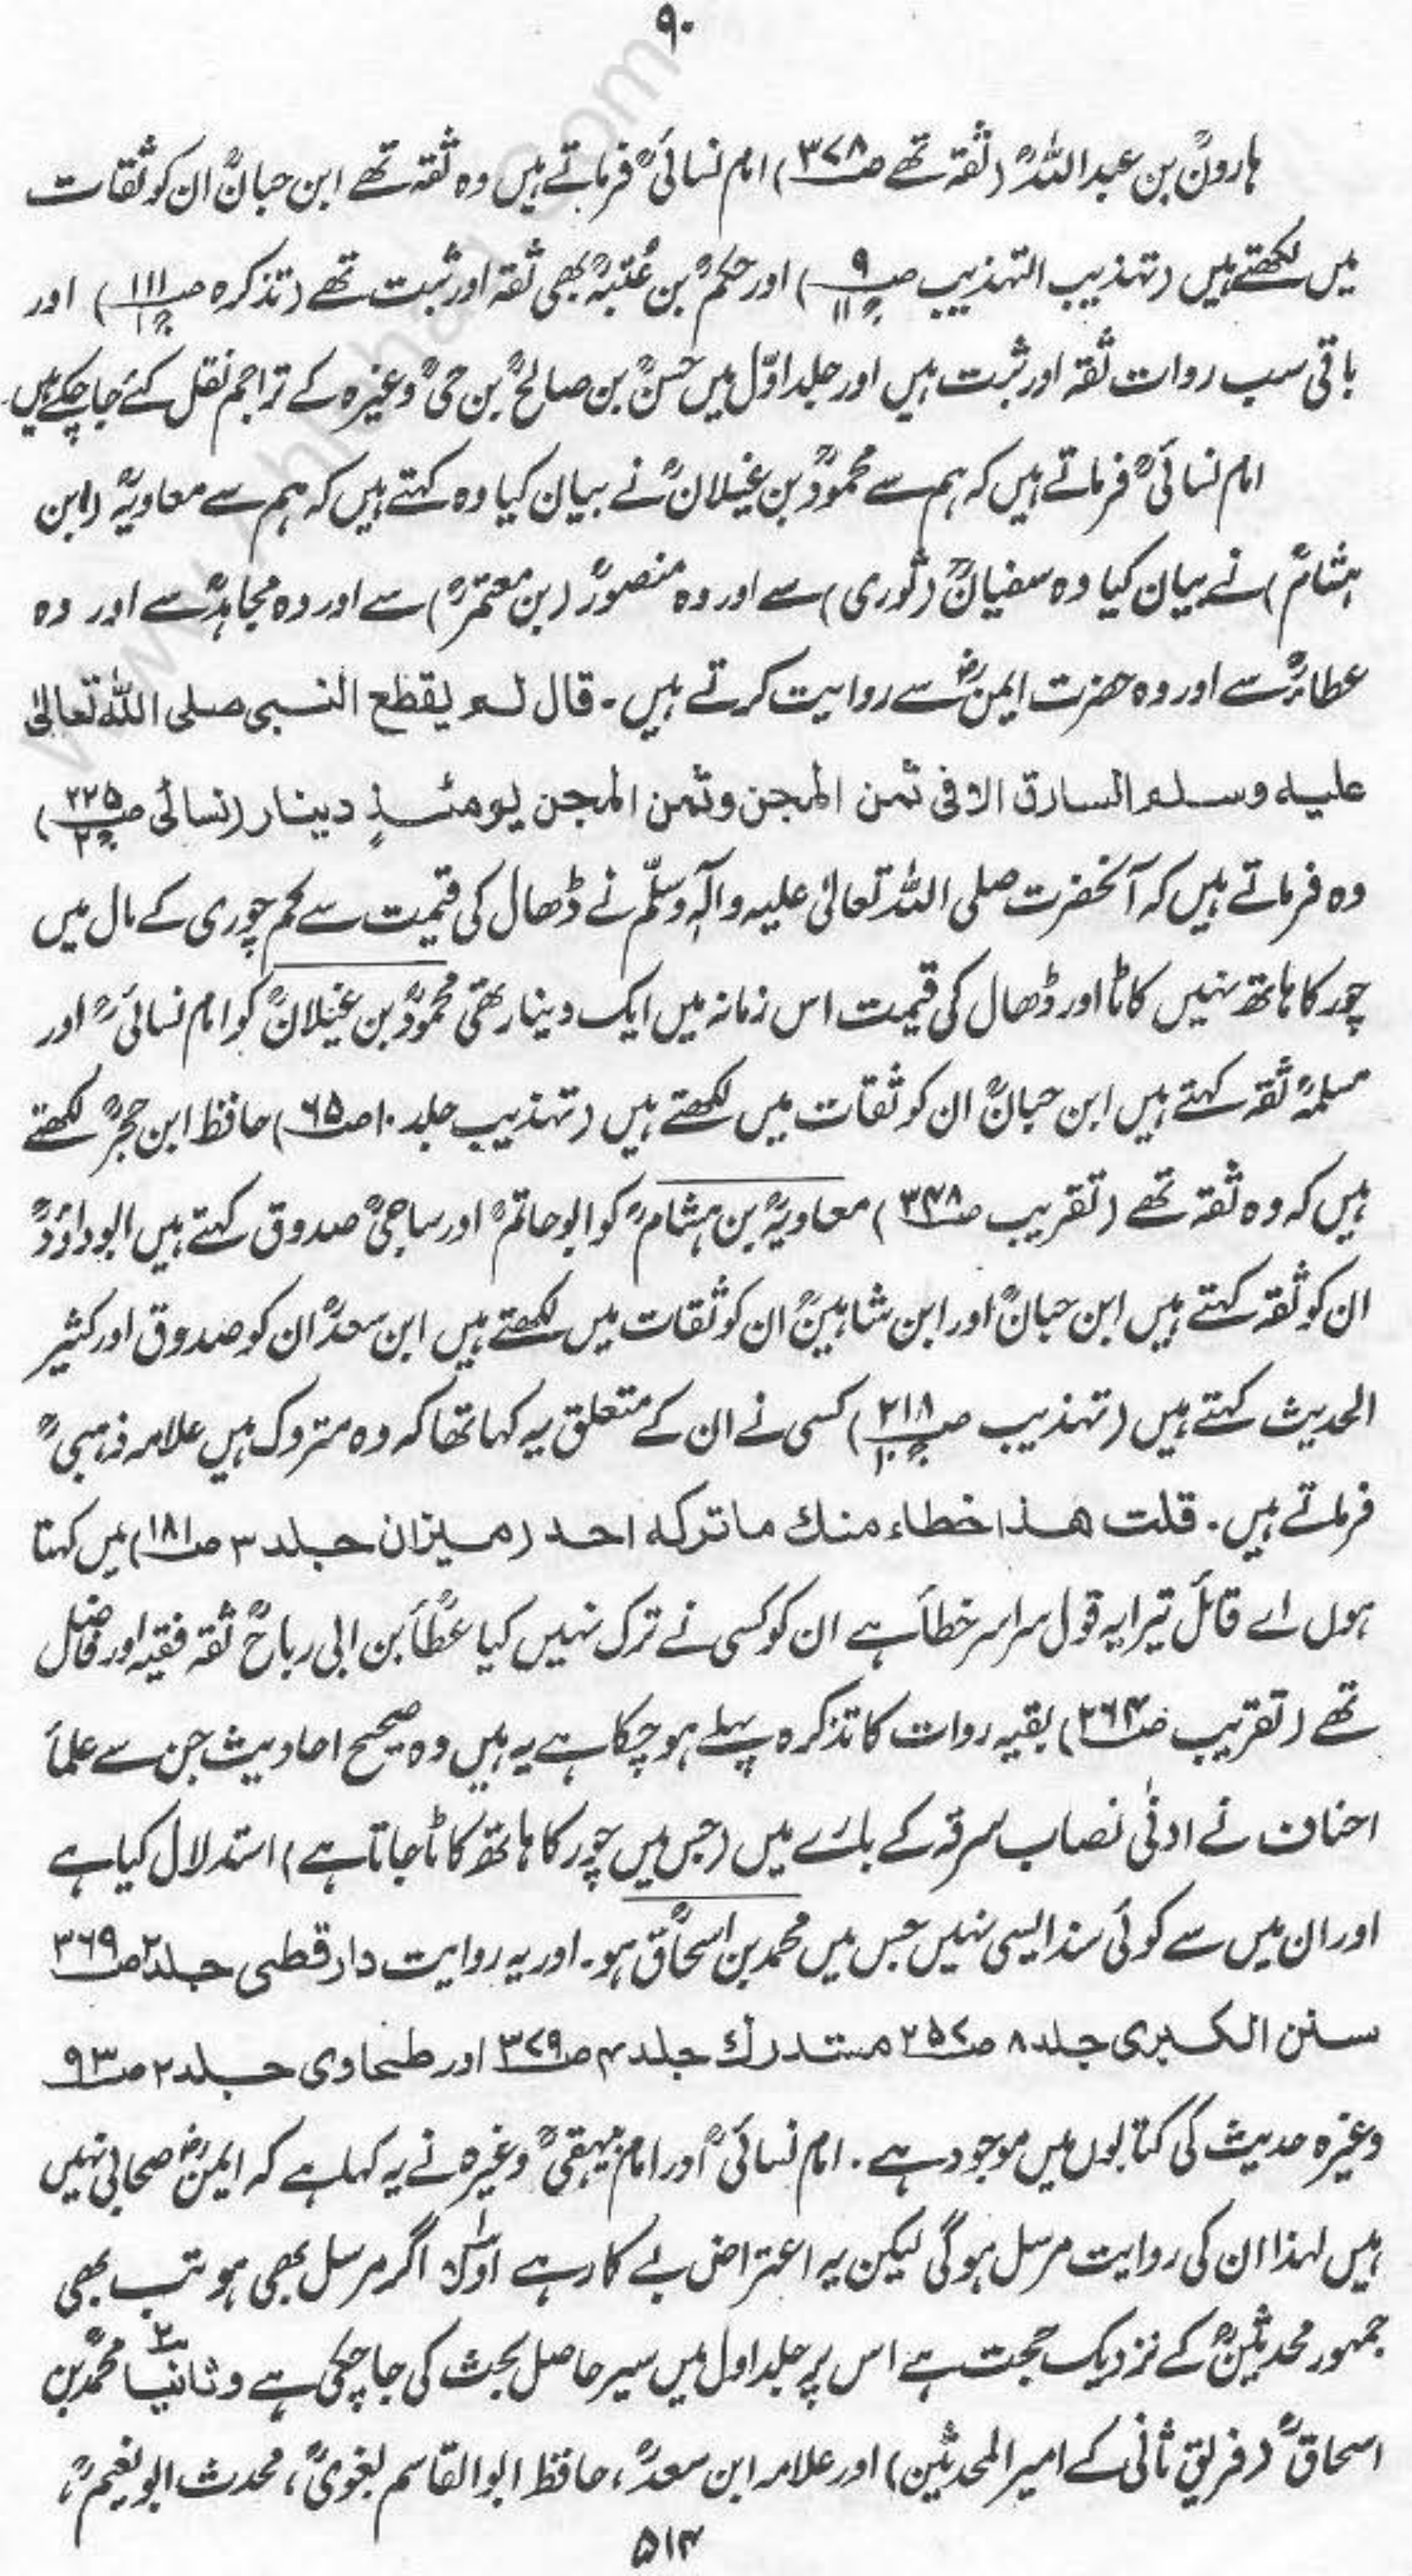 ۹۰
ہارونؒ بن عبداللہؒ (ثقہ تھے صـ۳۷۸) امام نسائیؒ فرماتے ہیں وہ ثقہ تھے ابن حبانؒ ان کو ثقات
میں لکھتے ہیں (تہذیب التہذیب صـ۹ جـ۱۱) اور حکمؒ بن عُتبہؒ بھی ثقہ اور ثبت تھے (تذکرہ صـ۱۱۱ جـ۱) اور
باقی سب روات ثقہ اور ثبت ہیں اور جلد اوّل میں حسنؒ بن صالحؒ بن حیؒ وغیرہ کے تراجم نقل کئے جا چکے ہیں۔
امام نسائیؒ فرماتے ہیں کہ ہم سے محمودؒ بن غیلانؒ نے بیان کیا وہ کہتے ہیں کہ ہم سے معاویہؒ (ابن
ہشامؒ) نے بیان کیا وہ سفیانؒ (ثوری) سے اور وہ منصورؒ (بن معتمرؒ) سے اور وہ مجاہدؒ سے اور وہ
عطاءؒ سے اور وہ حضرت ایمنؓ سے روایت کرتے ہیں۔ قال لم یقطع النبی صلی اللہ تعالیٰ
علیہ وسلم السارق الا فی ثمن المجن وثمن المجن یومئذٍ دینار (نسائی صـ۲۲۵ جـ۲)
وہ فرماتے ہیں کہ آنحضرت صلی اللہ تعالیٰ علیہ وآلہٖ وسلّم نے ڈھال کی قیمت سے کم چوری کے مال میں
چور کا ہاتھ نہیں کاٹا اور ڈھال کی قیمت اس زمانہ میں ایک دینار تھی محمودؒ بن غیلانؒ کو امام نسائیؒ اور
مسلمہؒ ثقہ کہتے ہیں ابن حبانؒ ان کو ثقات میں لکھتے ہیں (تہذیب جلد ۱۰ صـ۶۵) حافظ ابن حجرؒ لکھتے
ہیں کہ وہ ثقہ تھے (تقریب صـ۳۴۸) معاویہؒ بن ہشامؒ کو ابوحاتمؒ اور ساجیؒ صدوق کہتے ہیں ابوداؤدؒ
ان کو ثقہ کہتے ہیں ابن حبانؒ اور ابن شاہینؒ ان کو ثقات میں لکھتے ہیں ابن سعدؒ ان کو صدوق اور کثیر
الحدیث کہتے ہیں (تہذیب صـ۲۱۸ جـ۱۰) کسی نے ان کے متعلق یہ کہا تھا کہ وہ متروک ہیں علامہ ذہبیؒ
فرماتے ہیں۔ قلت ھذا خطاء منك ما ترکہ احد (میزان جلد ۳ صـ۱۸۱) میں کہتا
ہوں اے قائل تیرا یہ قول سراسر خطأ ہے ان کو کسی نے ترک نہیں کیا عطأؒ بن ابی رباحؒ ثقہ فقیہ اور فاضل
تھے (تقریب صـ۲۶۴) بقیہ روات کا تذکرہ پہلے ہو چکا ہے یہ ہیں وہ صحیح احادیث جن سے علمأ
احناف نے ادنیٰ نصاب سرقہ کے بارے میں (جس میں چور کا ہاتھ کاٹا جاتا ہے) استدلال کیا ہے
اور ان میں سے کوئی سند ایسی نہیں جس میں محمد بن اسحاقؒ ہو۔ اور یہ روایت دارقطنی جلد ۲ صـ۳۶۹
سنن الکبری جلد ۸ صـ۲۵۷ مستدرك جلد ۴ صـ۳۷۹ اور طحاوی جلد ۲ صـ۹۳
وغیرہ حدیث کی کتابوں میں موجود ہے۔ امام نسائیؒ اور امام بیہقیؒ وغیرہ نے یہ کہا ہے کہ ایمنؓ صحابی نہیں
ہیں لہذا ان کی روایت مرسل ہوگی لیکن یہ اعتراض بے کار ہے اوّلاً اگر مرسل بھی ہو تب بھی
جمہور محدثینؒ کے نزدیک حجت ہے اس پر جلد اول میں سیر حاصل بحث کی جا چکی ہے وثانیاً محمدؒ بن
اسحاقؒ (فریق ثانی کے امیر المحدثین) اور علامہ ابن سعدؒ، حافظ ابوالقاسم بغویؒ، محدث ابونعیمؒ،
۵۱۴